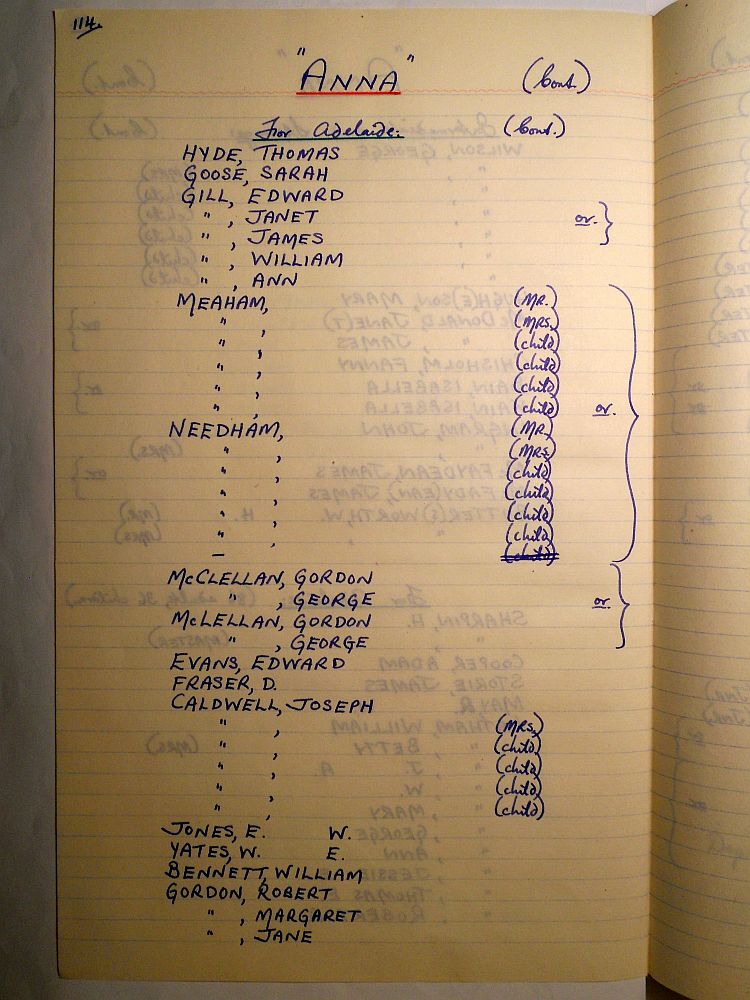 114.
"ANNA" (Cont.)
For Adelaide. (Cont.)
HYDE, THOMAS
GOOSE, SARAH
GILL, EDWARD
" , JANET or. }
" , JAMES
" , WILLIAM
" , ANN
MEAHAM, (MR.)
" , (MRS.)
" , (child)
" , (child)
" , (child)
" , (child) or. }
NEEDHAM, (MR.)
" , (MRS.)
" , (child)
" , (child)
" , (child)
" , (child)
– (child)
McCLELLAN, GORDON
" , GEORGE or. }
McLELLAN, GORDON
" , GEORGE
EVANS, EDWARD
FRASER, D.
CALDWELL, JOSEPH
" , (MRS.)
" , (child)
" , (child)
" , (child)
" , (child)
JONES, E. W.
YATES, W. E.
BENNETT, WILLIAM
GORDON, ROBERT
" , MARGARET
" , JANE